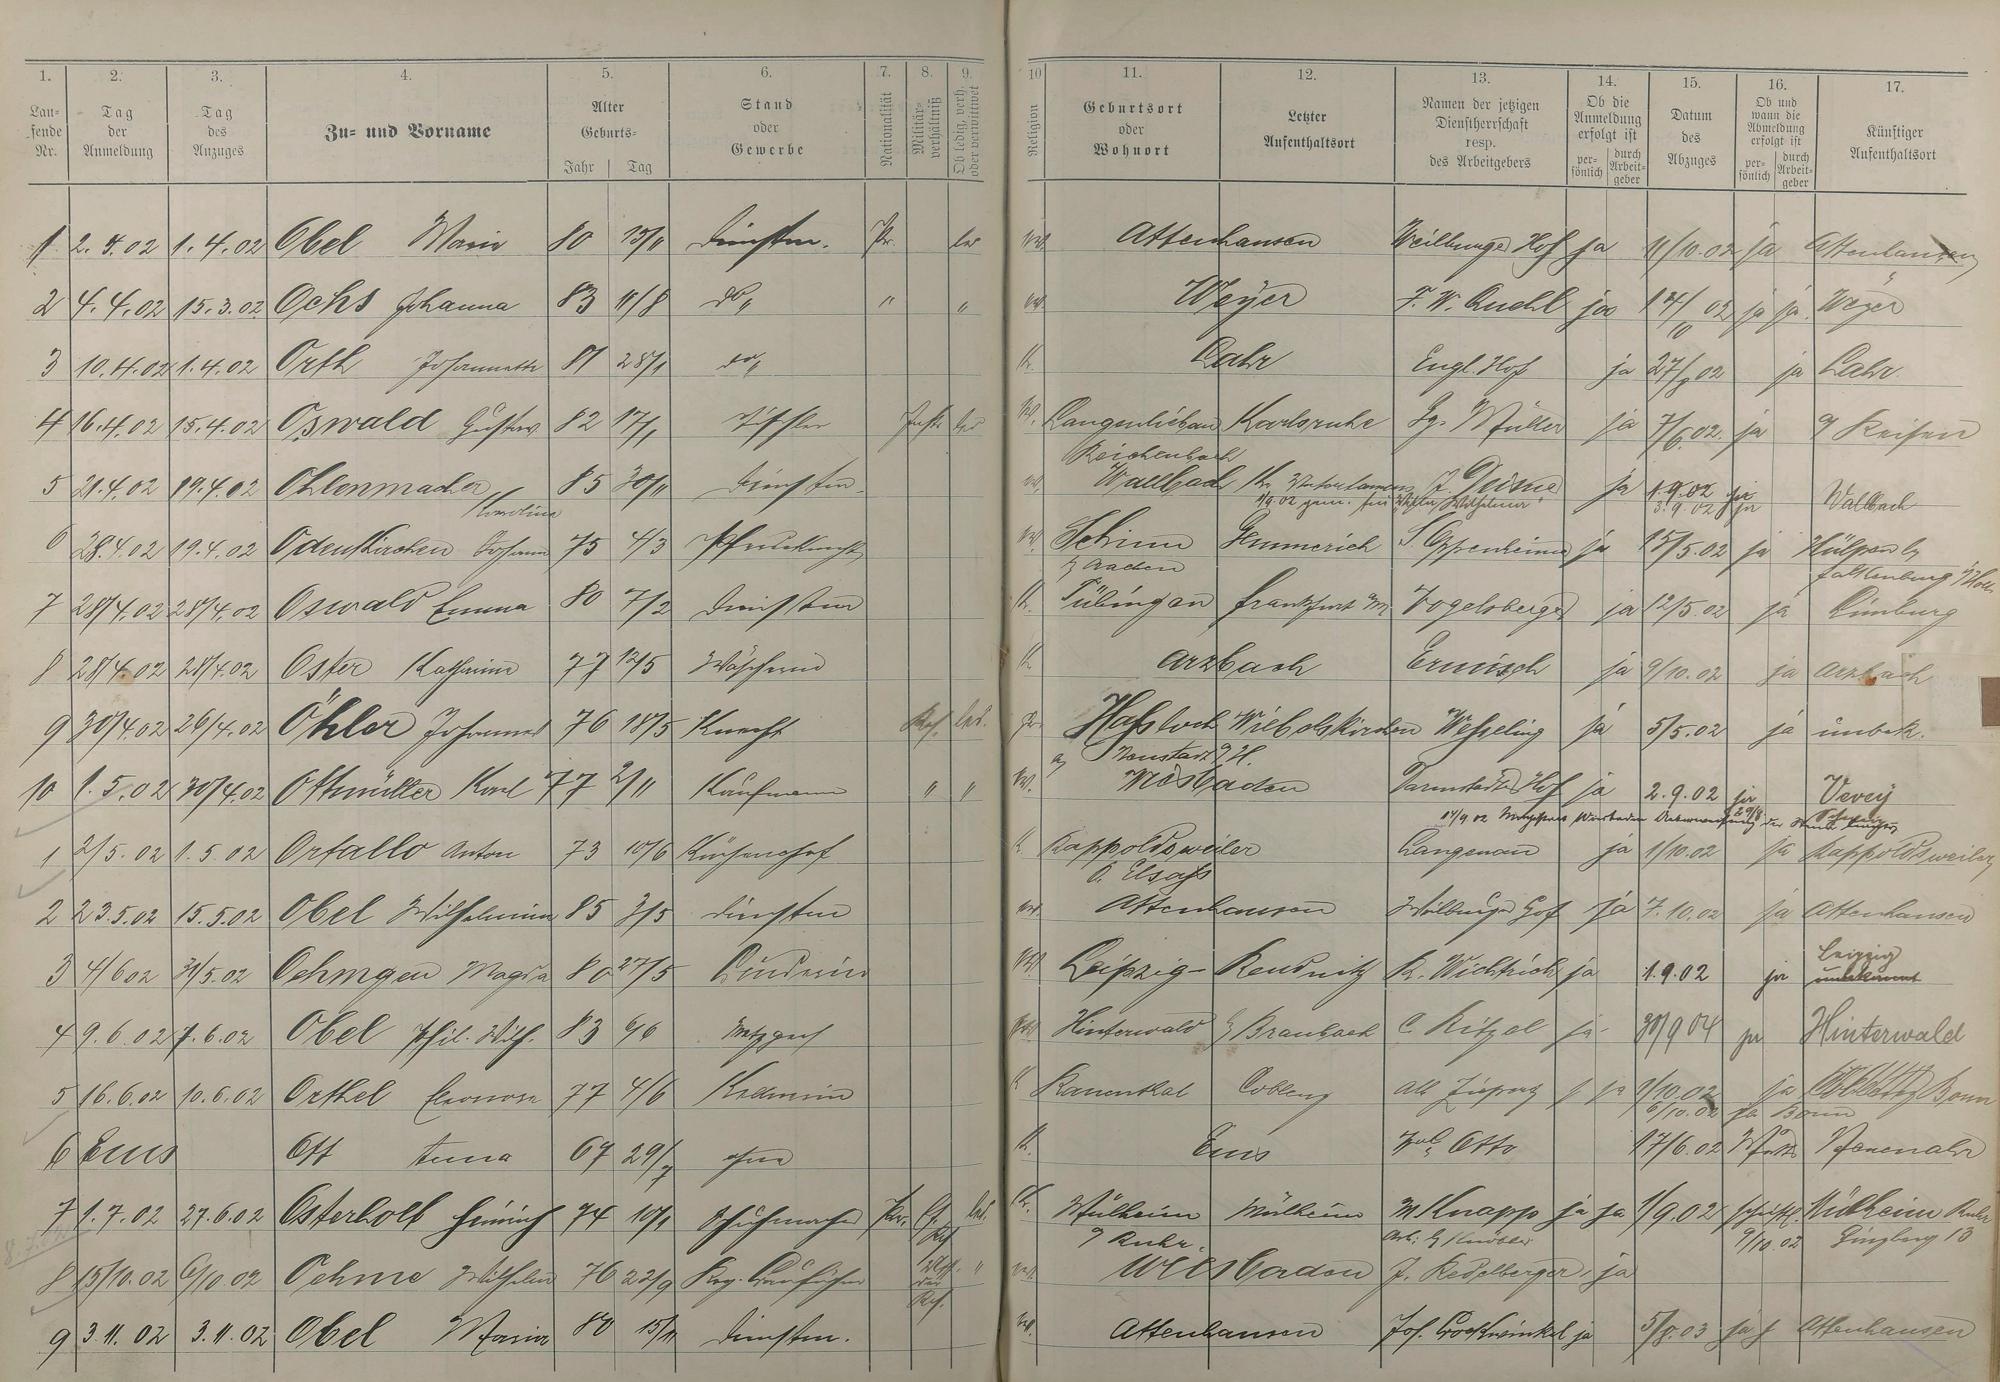 1. 2. 3. 4. 5. 6. 7. 8. 9. 10 11. 12. 13. 14. 15. 16. 17.
Lau-
fende
Nr.
Tag
der
Anmeldung
Tag
des
Anzuges
Zu- und Vorname
Alter
Geburts-
Jahr Tag
Stand
oder
Gewerbe
Nationalität
Militär-
verhältniß
Ob ledig, verh.
oder verwittwet
Religion
Geburtsort
oder
Wohnort
Letzter
Aufenthaltsort
Namen der jetzigen
Dienstherrschaft
resp.
des Arbeitgebers
Ob die
Anmeldung
erfolgt ist
per-
sönlich
durch
Arbeit-
geber
Datum
des
Abzuges
Ob und
wann die
Abmeldung
erfolgt ist
per-
sönlich
durch
Arbeit-
geber
Künftiger
Aufenthaltsort
1 2.4.02 1.4.02 Obel Marie 80 15/11 Dienstm. Pr. led ev. Attenhausen Weilburger Hof ja 11/10.02 ja Attenhausen
2 4.4.02 15.3.02 Ochs Johanna 83 11/8 do " " ev. Weyer F. W. Quehl ja 14/11 02 ja ja Weyer
3 10.4.02 1.4.02 Orth Johannette 81 28/1 do " K. Lahr Engl. Hof ja 27/9 02 ja Lahr
4 16.4.02 15.4.02 Oswald Gustav 82 17/1 Tischler led ev. Langenlieban Karlsruhe Gg. Müller ja 7/6.02. ja a/ Reisen
Reichenbach
5 21.4.02 19.4.02 Ohlenmacher 85 30/11 Dienstm. ev. Wallbach ja 1.9.02 ja Wallbach
Karolina 3.9.02 ja
6 28.4.02 19.4.02 Odenkirchen Johann 75 4/3 ev. Emmerich S. Oppenheimer ja 15/5.02 ja Hülsen b/
b/ Aachen Falkenburg i/ Holl.
7 28/4.02 28/4.02 Oswald Emma 80 7/2 Dienstm K. Tübingen Frankfurt M. Vogelsberger ja 12/5.02 ja Limburg
8 28/4.02 28/4.02 Oster Katharina 77 12/5 Wäscherin K. Arzbach Ermisch ja 9/10.02 ja Arzbach
9 30/4.02 26/4.02 Öhler Johannes 76 18/5 Knecht Res. led. Haßloch Wiebelskirchen Wesseling ja 5/5.02 ja unbek.
a/ Neustadt a/ H.
10 1.5.02 30/4.02 Ottmüller Karl 77 2/11 Kaufmann " " ev. Wiesbaden Darmstädter Hof ja 2.9.02 ja Vevey
1 2/5.02 1.5.02 Ortallo Anton 73 10/6 Küchenchef K Rappoldsweiler Langenau ja 1/10.02 ja Rappoldsweiler
O. Elsaß
2 23.5.02 15.5.02 Obel Wilhelmine 85 3/5 Dienstm ev. Attenhausen Weilburger Hof ja 7.10.02 ja Attenhausen
3 4/6 02 31/5.02 Oehmgen Magda 80 27/5 ev. Leipzig - Reudnitz R. Wichtrich ja 1.9.02 ja Leipzig
unbekannt
4 9.6.02 7.6.02 Obel Phil. Wilh. 83 6/6 Metzger ev. Hinterwald b/ Braubach C. Ritzel ja 30/9 04 ja Hinterwald
5 16.6.02 10.6.02 Orthel Eleonore 77 4/6 Kellnerin K Rauenthal Coblenz ja 2/10.02 ja Coblenz Bonn
6/10.02 ja Bonn
6 Ems Ott Anna 67 29/7 ohne K. Ems Otto 17/6.02
7 1.7.02 27.6.02 Osterholt Heinrich 74 10/1 Schuhmacher Pr. led. K. Mülheim Mülheim M Knapp ja ja 1/9.02 schriftl. Mülheim Ruhr
a/ Ruhr. 9/10.02
8 15/10.02 6/10.02 Oehme Wilhelm 76 22/9 Reg. Bauführer " ev. Wiesbaden J. Redelberger ja
9 3.11.02 3.11.02 Obel Maria 80 15/11 Dienstm. ev. Attenhausen Jos. ja 5/8.03 ja Attenhausen